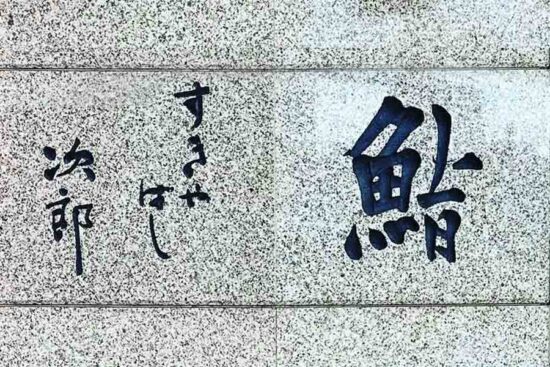 鮨
すきや
はし
次郎